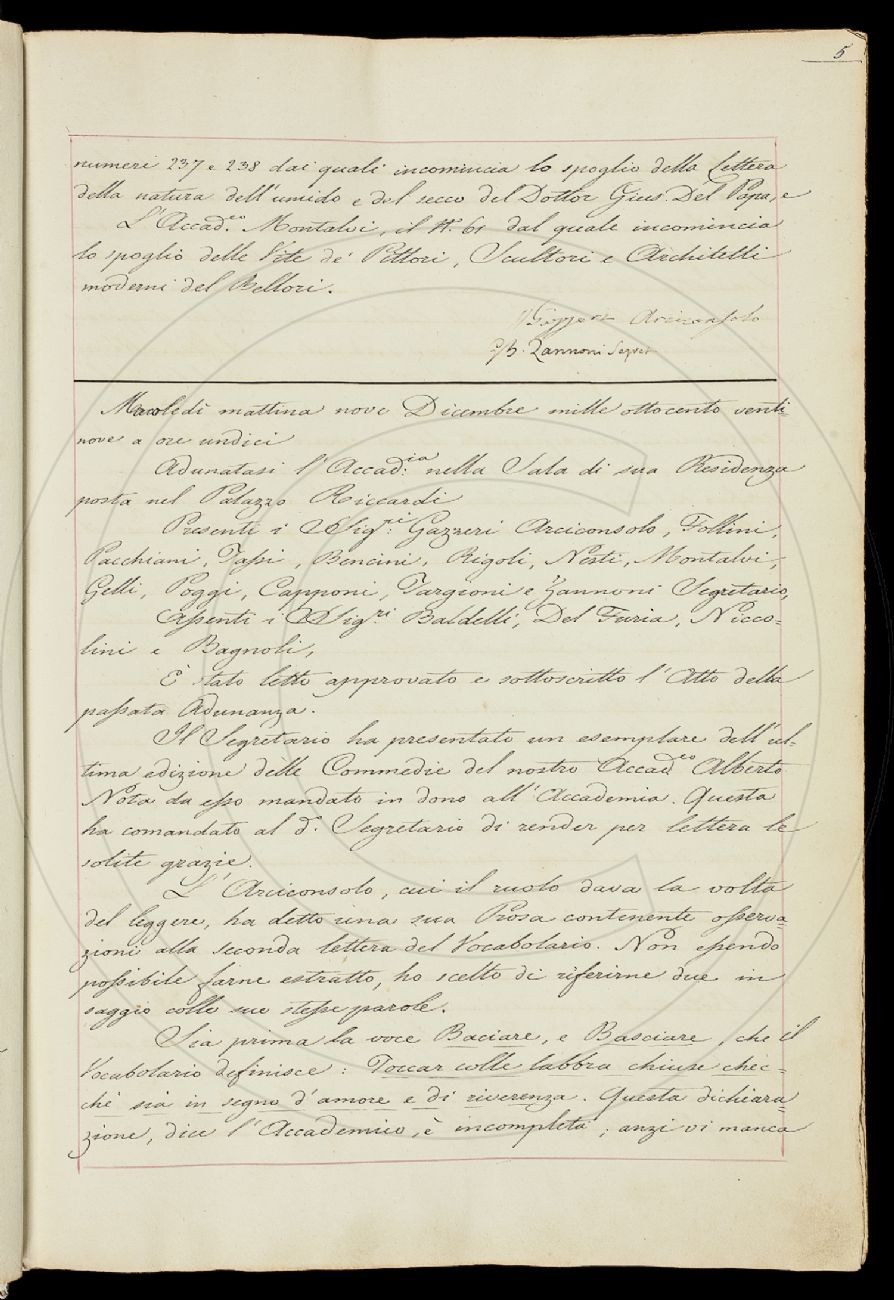 5
numeri 237 e 238 dai quali incomincia lo spoglio della Lettera
della natura dell'umido e del secco del Dottor Gius. Del Papa, e
L'Accad.co Montalvi, il N.° 61 dal quale incomincia
lo spoglio delle Vite de' Pittori, Scultori e Architetti
moderni del Bellori.
Gazzeri Arciconsolo
G.B. Zannoni Segret
Mercoledì mattina nove Dicembre mille ottocento venti=
nove a ore undici
Adunatasi l'Accad.ia nella Sala di sua Residenza
posta nel Palazzo Riccardi
Presenti i SSig.ri Gazzeri Arciconsolo, Follini,
Pacchiani, Tassi, Bencini, Rigoli, Nesti, Montalvi,
Gelli, Poggi, Capponi, Targioni e Zannoni Segretario,
Assenti i SSig.ri Baldelli, Del Furia, Nicco=
lini e Bagnoli,
È stato letto approvato e sottoscritto l'Atto della
passata Adunanza.
Il Segretario ha presentato un esemplare dell'ul=
tima edizione delle Commedie del nostro Accad.co Alberto
Nota da esso mandato in dono all'Accademia. Questa
ha comandato al d.° Segretario di render per lettera le
solite grazie.
L'Arciconsolo, cui il ruolo dava la volta
del leggere, ha detto una sua Prosa contenente osserva=
zioni alla seconda lettera del Vocabolario. Non essendo
possibile farne estratto, ho scelto di riferirne due in
saggio colle sue stesse parole.
Sia prima la voce Baciare, e Basciare, che il
Vocabolario definisce: Toccar colle labbra chiuse chec=
chè sia in segno d'amore e di riverenza. Questa dichiara=
zione, dice l'Accademico, è incompleta; anzi vi manca